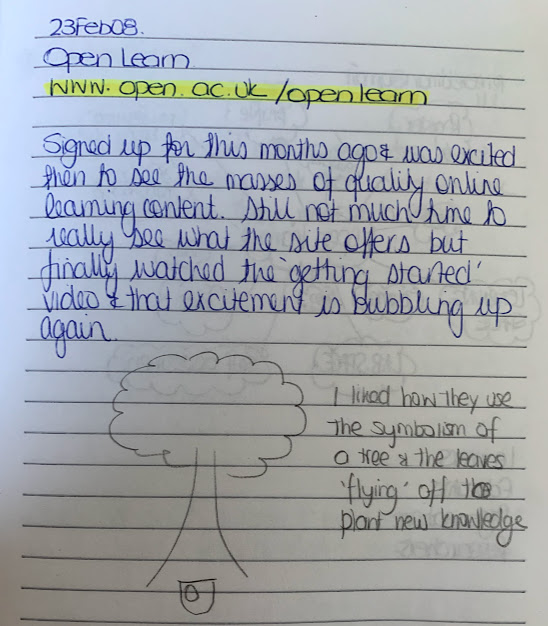 23Feb08.
Open Learn
www.open.ac.uk/openlearn
Signed up for this months ago & was excited
then to see the masses of quality online
learning content. Still not much time to
really see what the site offers but
finally watched the 'getting started'
video & that excitement is bubbling up
again.
I liked how they use
the symbolism of
a tree & the leaves
'flying' off to
plant new knowledge